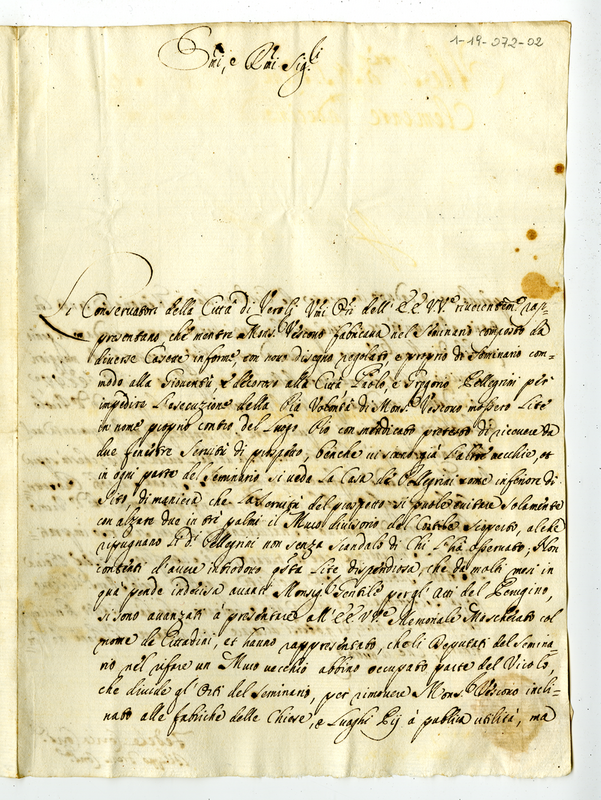 1-19-072-02
Emi, e Rmi Sig.ri
Li Conservatori della Città di Veroli Vmi Ori dell' EE. VV. riverentem.e rap=
presentano, che mentre Mons.r Vescovo fabricava nel Seminario composto da
diverse Casette informe, con novo disegno regolato, e proprio di Seminario com=
modo alla Gioventù, e decoroso alla Città, Paolo, e Gregorio Pellegrini per
impedire l'esecuzione della Pia Volontà di Mons.r Vescovo mossero Lite
in nome proprio contro del Luogo Pio con mendicato pretesto di ricevere da
due fenestre Servitù di prospetto, benche vi siano già l'altre vecchie, et
in ogni parte del Seminario si veda la Casa de Pellegrini come inferiore di
Sito, di maniera che la servitù del prospetto si puole evitare solamente
con alzare due in trè palmi il Muro divisorio del Cortile scoperto, al che
ripugnano li d.i Pellegrini non senza scandalo di Chi l'hà osservato; Non
contenti d'aver introdotto q.sta Lite dispendiosa, che da molti mesi in
qua pende indecisa avanti Monsig.r Gentile per gl'Atti del Perugino,
si sono avanzati à presentare all'EE. VV. Memoriale Mascherato col
nome de Cittadini, et hanno rappresentato, che li Deputati del Semina=
rio nel rifare un Muro vecchio abbino occupato parte del Vicolo,
che divide gl'Orti del Seminario, per rimovere Mons.r Vescovo incli=
nato alle fabriche delle Chiese, e Luoghi Pij à publica utilità, ma